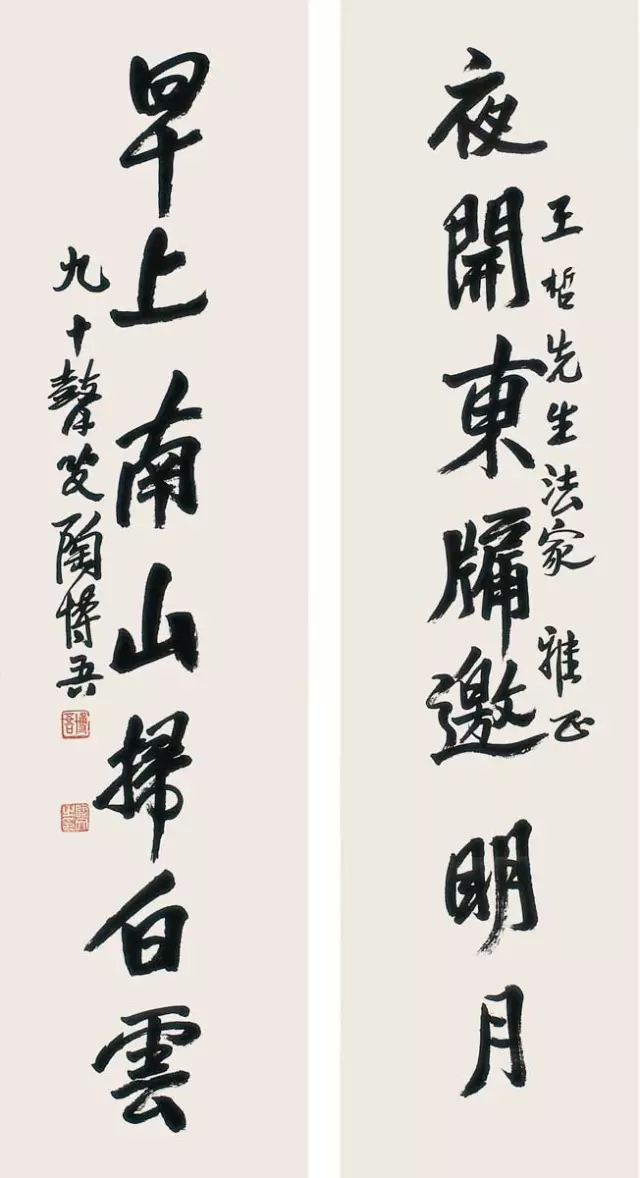 夜開東牖邀明月
王哲先生法家 雅正
早上南山掃白雲
九十聱叟陶博吾
博吾